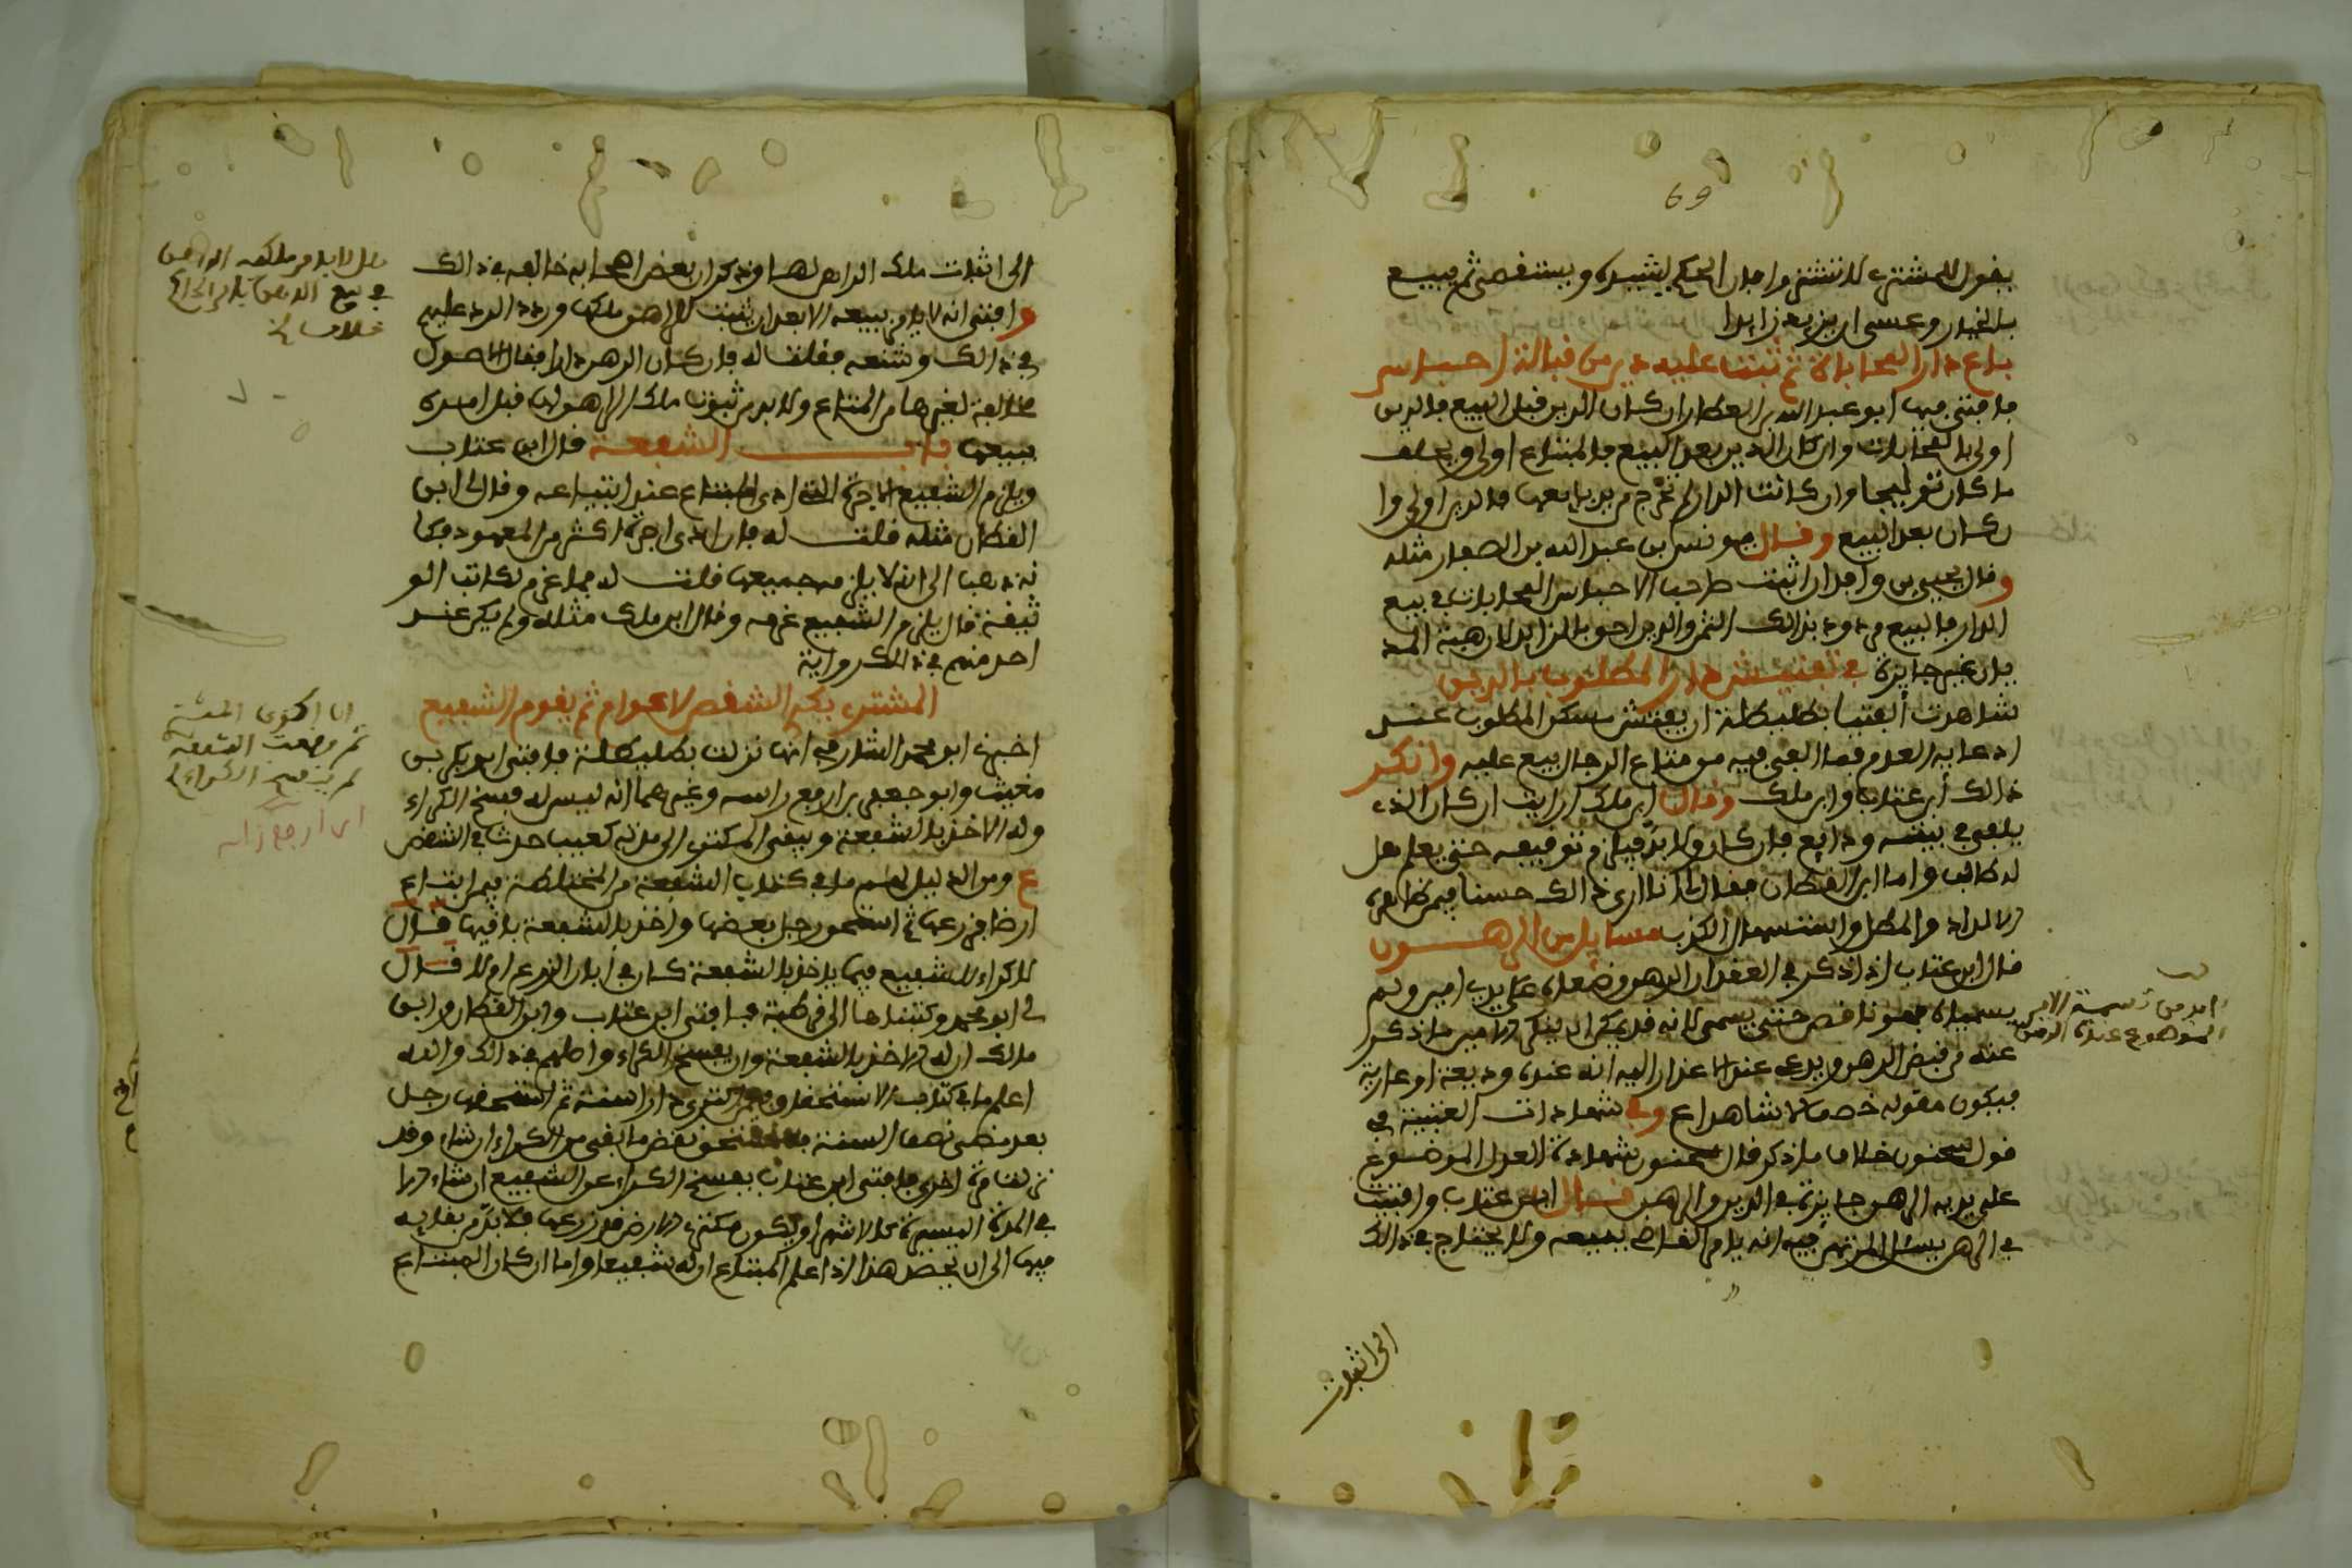 69
يقول للمشتري لا تشتر واجل الحكم ليشيده ويستقصي ثم يبيع
بالخيار وعسى ان يزيد زايدا
باع دارا بمحاباة ثم ثبت عليه دين من قبالة احباس
فافتى فيها ابو عبد الله بن العطار ان كان الدين قبل البيع فالدين
اولى بالمحابات وان كان الدين بعد البيع فالمبتاع اولى ويحلف
ما كان توليجا وان كانت الدار لم تخرج من يد بايعها فالدين اولى وا
ن كان بعد البيع وقال يونس بن عبد الله بن الصفار مثله
وقال يحيى بن وافد ان اثبت صاحب الاحباس المحابات في بيع
الدار فالبيع مردود بذالك الثمن والدين احق بالزايد لان هبة المد
يان غير جايزة في تفتيش دار المطلوب بالدين
شاهدت الفتيا بطليطلة ان يفتش مسكن المطلوب عند
ادعايه العدم فما الفي فيه من متاع الرجال بيع عليه وانكر
ذالك ابن عتاب وابن ملك وقال ابن ملك ارايت ان كان الذي
يلفى في بيته ودايع فان كان ولا بد فيلزم توقيفه حتى يعلم هل
له طالب واما ابن القطان فقال لي انا ارى ذالك حسنا فيمن ظاهره
الالداد والمطل واستسهال الكذب مسايل من الرهون
قال ابن عتاب اذا ذكر في العقد ان الرهن وضعاه على يدي امين ولم
يسمياه فهو ناقص حتى يسمى لانه قد يمكن ان ينكر الامين ما ذكر
عنه من قبض الرهن ويدعي عند الاعذار اليه انه عنده وديعة او عارية
فيكون مقوله خصما لا شاهدا ع وفي شهادات العتبية في
قول سحنون خلاف ما ذكر قال سحنون شهادة العدل الموضوع
على يديه الرهن جايزة في الدين والرهن قال ابن عتاب وافتيت
في الرهن يسئل المرتهن بيعه انه يامر القاضي ببيعه ولا يحتاج في ذالك
الى اثبات
امد من تسمية الامين
الموضوع عنده الرهن
الى اثبات ملك الراهن لها وذكر ان بعض اصحابه خالفه في ذالك
وافتى انه لا يامر ببيعه الا بعد ان يثبت الراهن ملكها وردد الرد عليهم
في ذالك وشنعه فقلت له فان كان الرهن دارا فقال الاصول
مخالفة لغيرها من المتاع ولا بد من ثبوت ملك الراهن لها قبل امره
ببيعها باب الشفعة قال ابن عتاب
ويلزم الشفيع الاجرة التي ادى المبتاع عند ابتياعه وقال لي ابن
القطان مثله قلت له فان ادى اجرة اكثر من المعهود فكا
نه ذهب الى انه لا يلزمه جميعها قلت له فما غرم لكاتب الو
ثيقة قال يلزم الشفيع غرمه وقال ابن ملك مثله ولم يكن عند
احد منهم في ذالك رواية
المشتري يكري الشقص لاعوام ثم يقوم الشفيع
اخبرني ابو محمد الشارفي انها نزلت بطليطلة فافتى ابو بكر بن
مغيث وابو جعفر بن ارفع راسه وغيرهما انه ليس له فسخ الكراء
وله الاخذ بالشفعة ويبقى المكتري الى مدته كعيب حدث في الشقص
ع ومن الدليل لهم ما في كتاب الشفعة من المختلطة فيمن ابتاع
ارضا فزرعها ثم استحق رجل بعضها واخذ بالشفعة باقيها قال
لا كراء للشفيع فيما ياخذ بالشفعة كان في ابان الزرع ام لا قال
لي ابو محمد وكتبنا بها الى قرطبة فافتى ابن عتاب وابن القطان وابن
مالك ان له الاخذ بالشفعة وان يفسخ الكراء واصلهم في ذالك والله
اعلم ما في كتاب الاستحقاق فيمن اكترى دارا سنة ثم استحقها رجل
بعد مضي نصف السنة فللمستحق نقض ما بقي من الكراء ان شاء وقد
نزلت مرة اخرى فافتى ابن عتاب بفسخ الكراء عن الشفيع ان شاء الا
في المدة اليسيرة كالاشهر او يكون مكتري الارض قد زرعها فلا بد من بقايه
فيها الى ان يحصد هذا اذا علم المبتاع ان له شفيعا واما ان كان المبتاع
هل لا بد من ملكه الراهن
في بيع الرهن بامر الحاكم
خلاف
اذا اكرى المشتري
ثم وقعت الشفعة
لم ينفسخ الكراء